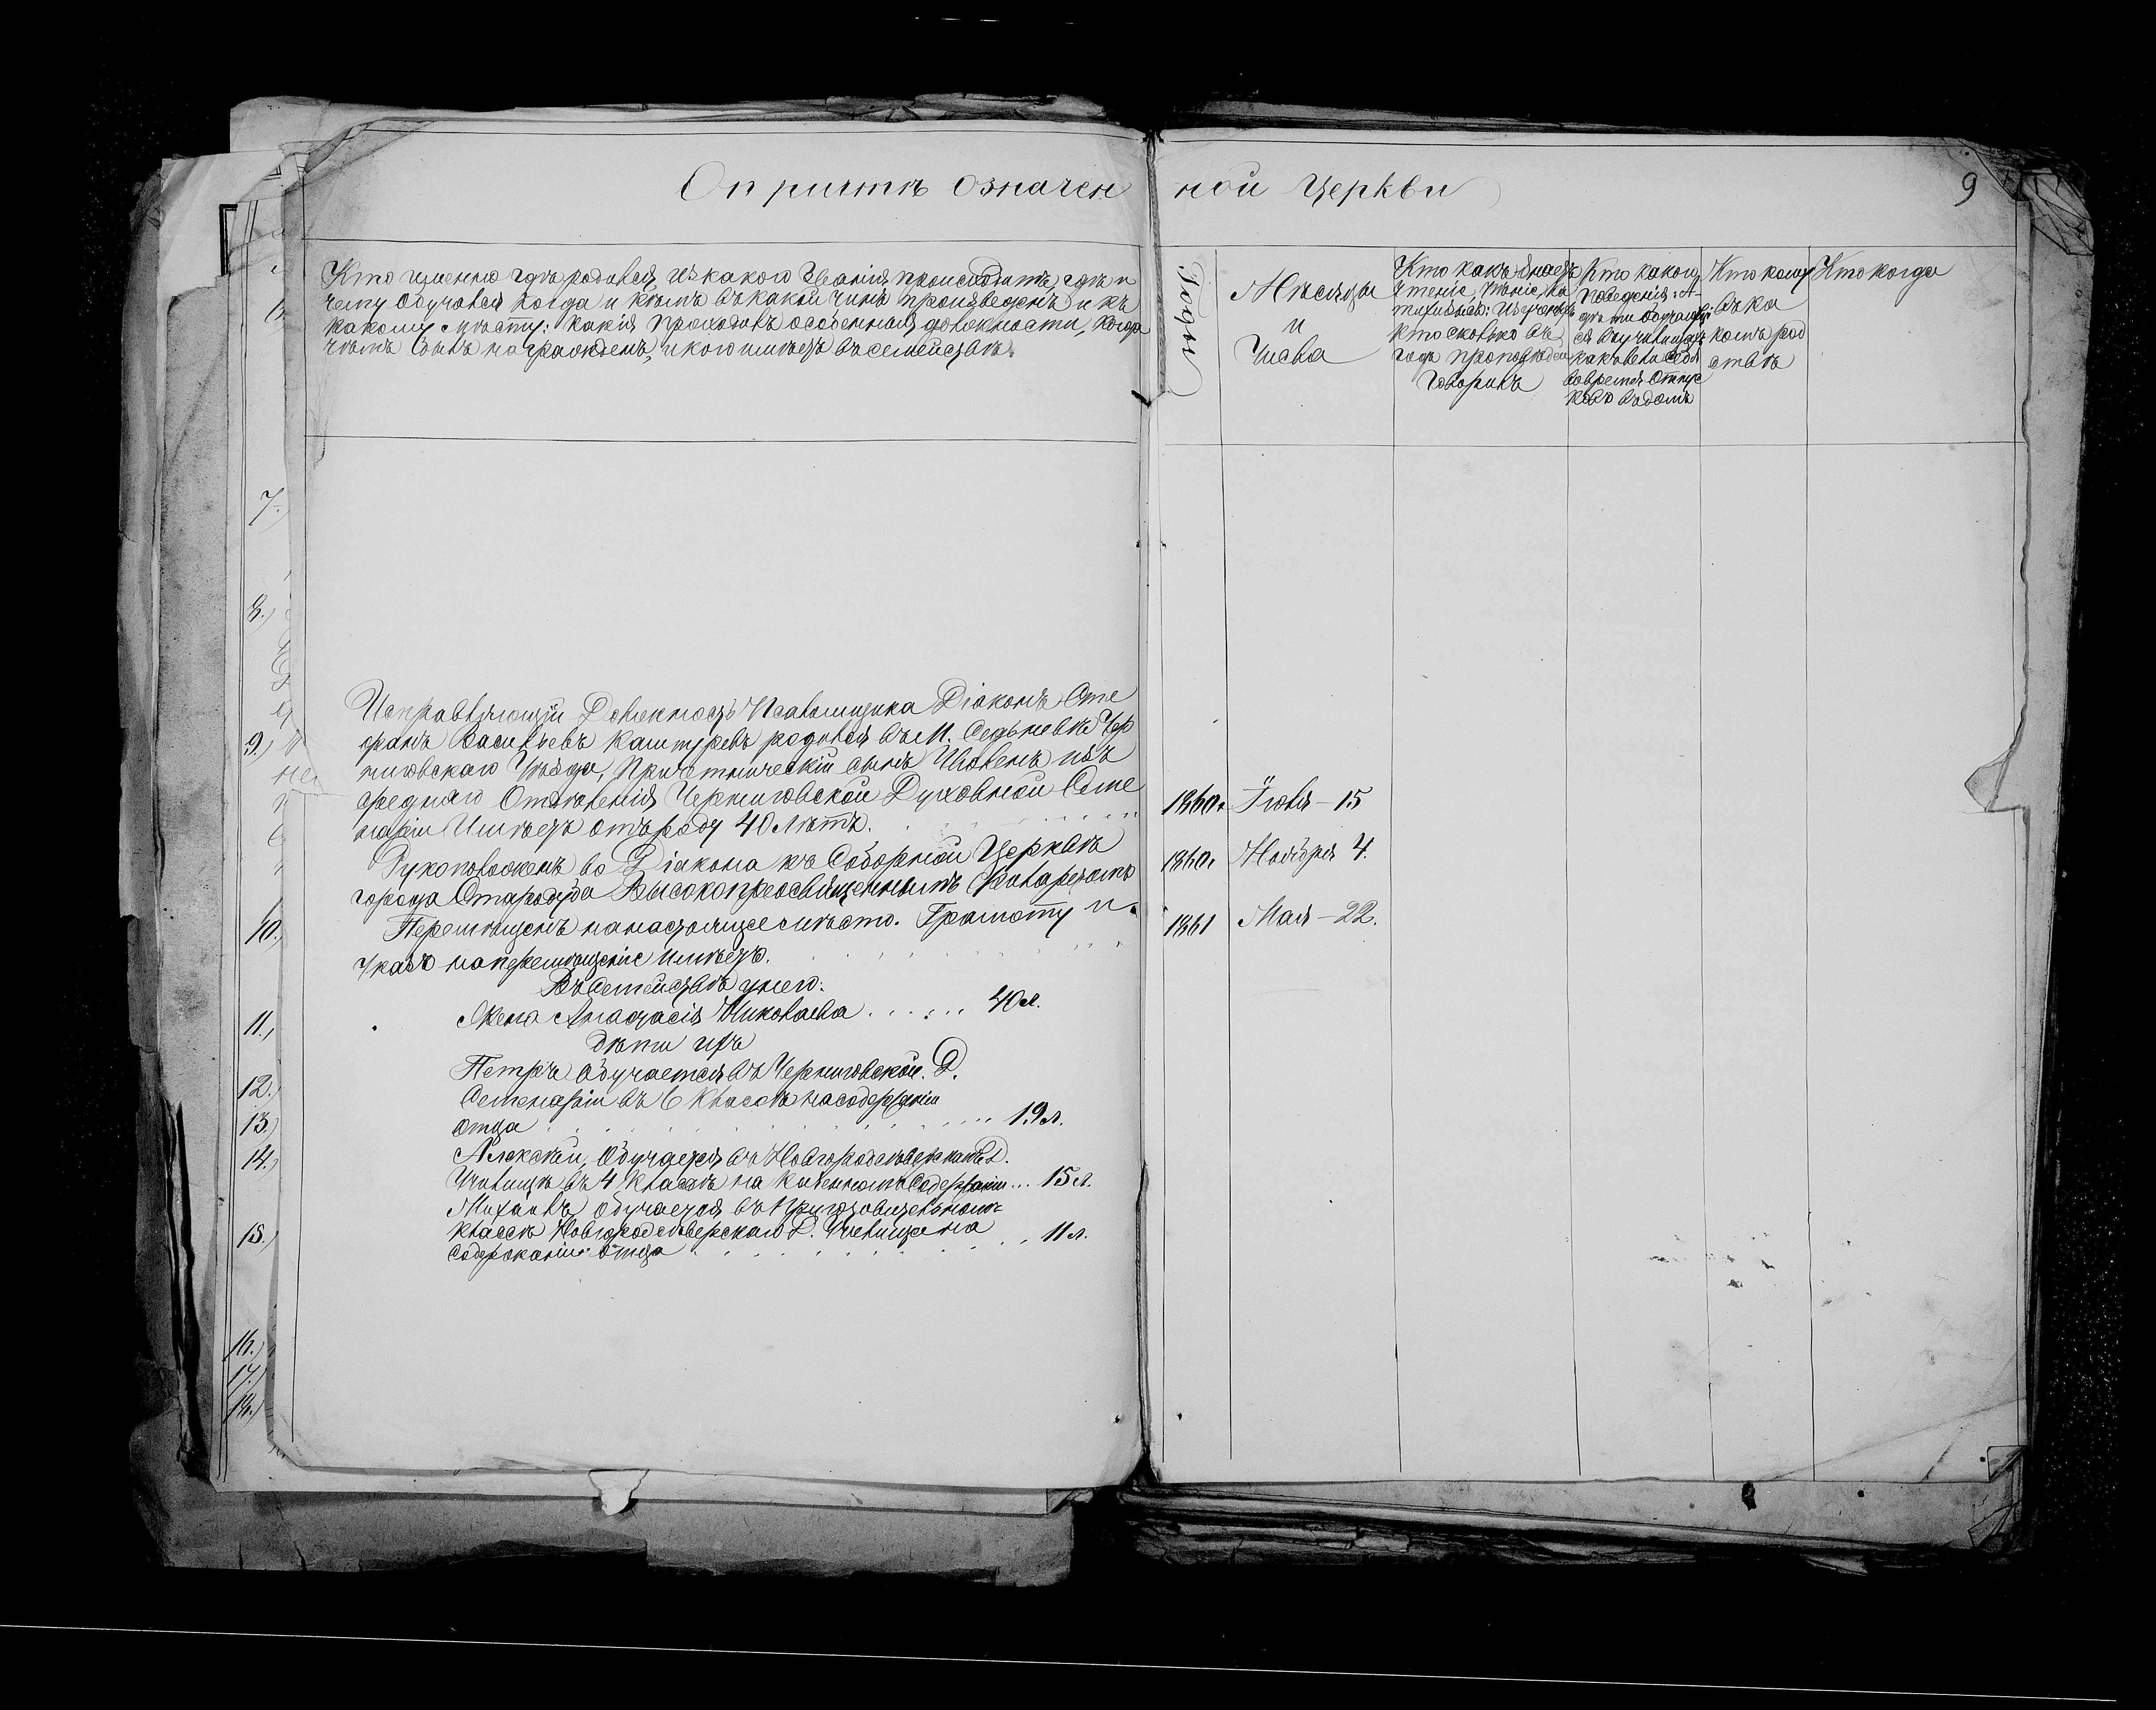 О причтѣ означен ной Церкви
9
Кто именно гдѣ родился, изъ какого званія происходитъ, гдѣ и
чему обучался когда и кѣмъ въ какой чинъ произведенъ и къ
какому мѣсту: какія проходилъ особенныя должности, когда
чѣмъ былъ награжденъ, и кого имѣетъ въ семействѣ.
Годы
Мѣсяцы
и
Числа
Кто какъ знаетъ
чтеніе, пѣніе, ка
тихизисъ: Изъ ученыхъ
кто сколько въ
годъ проповѣдей
говорилъ
Кто какого
поведенія: А
дѣти обучающі
ся въ училищахъ
каковы были
во время отпус
ковъ въ домъ
Кто кому
въ ка
комъ род
ствѣ
Кто когда
7.
8.)
9.)
10.)
11.,
12.)
13.)
14.)
15.)
16.)
17.)
18.)
Исправляющій Должность Псаломщика Діаконъ Сте
фанъ Васильевъ Каштуревъ родился въ М. Седьневѣ Чер
ниговскаго Уѣзда, Причетническій сынъ Уволенъ изъ
средняго Отдѣленія Черниговской Духовной Семе
наріи Имѣетъ отъ роду 40 лѣтъ.
1860. Іюля – 15
Рукоположенъ во Діакона къ Соборной Церквѣ
города Стародуба Высокопреосвященнымъ Филаретомъ
1860. Ноября 4.
Перемѣщенъ на настоящее мѣсто. Грамоту и
указъ на перемѣщеніе имѣетъ.
1861 Мая – 22.
Въ семействѣ у него:
Жена Анастасія Николаева . . . . . . 40 л.
Дѣти ихъ
Петръ обучается въ Черниговской. Д.
Семенаріи въ 6 Классѣ на содержаніи
отца . . . . . . 19 л.
Алексѣй, обучается въ Новгородсѣверскомъ Д.
Училищѣ въ 4 Классѣ на казенномъ содержаніи ... 15 л.
Михаилъ обучается въ Приготовительномъ
классѣ Новгородсѣверскаго Д. Училища на
содержаніи отца . . . . . . 11 л.